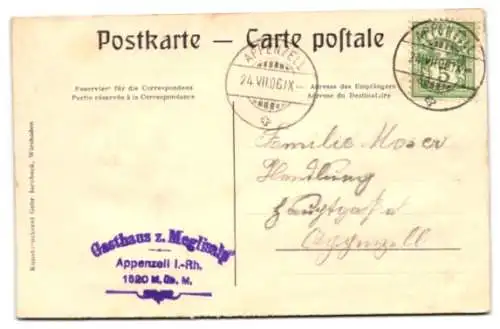 Postkarte — Carte postale
Reservier für die Correspondenz
Partie réservée à la Correspondance
Adresse des Empfängers
Adresse du Destinataire
APPENZELL
24.VII.06.IX—
APPENZELL
24.VII.06.IX
5
Familie Moser
Handlung
Hauptgasse
Appenzell
Gasthaus z. Meglisalp
Appenzell I.-Rh.
1520 M. üb. M.
Kunstdruckerei Gebr. Isenbeck, Wiesbaden